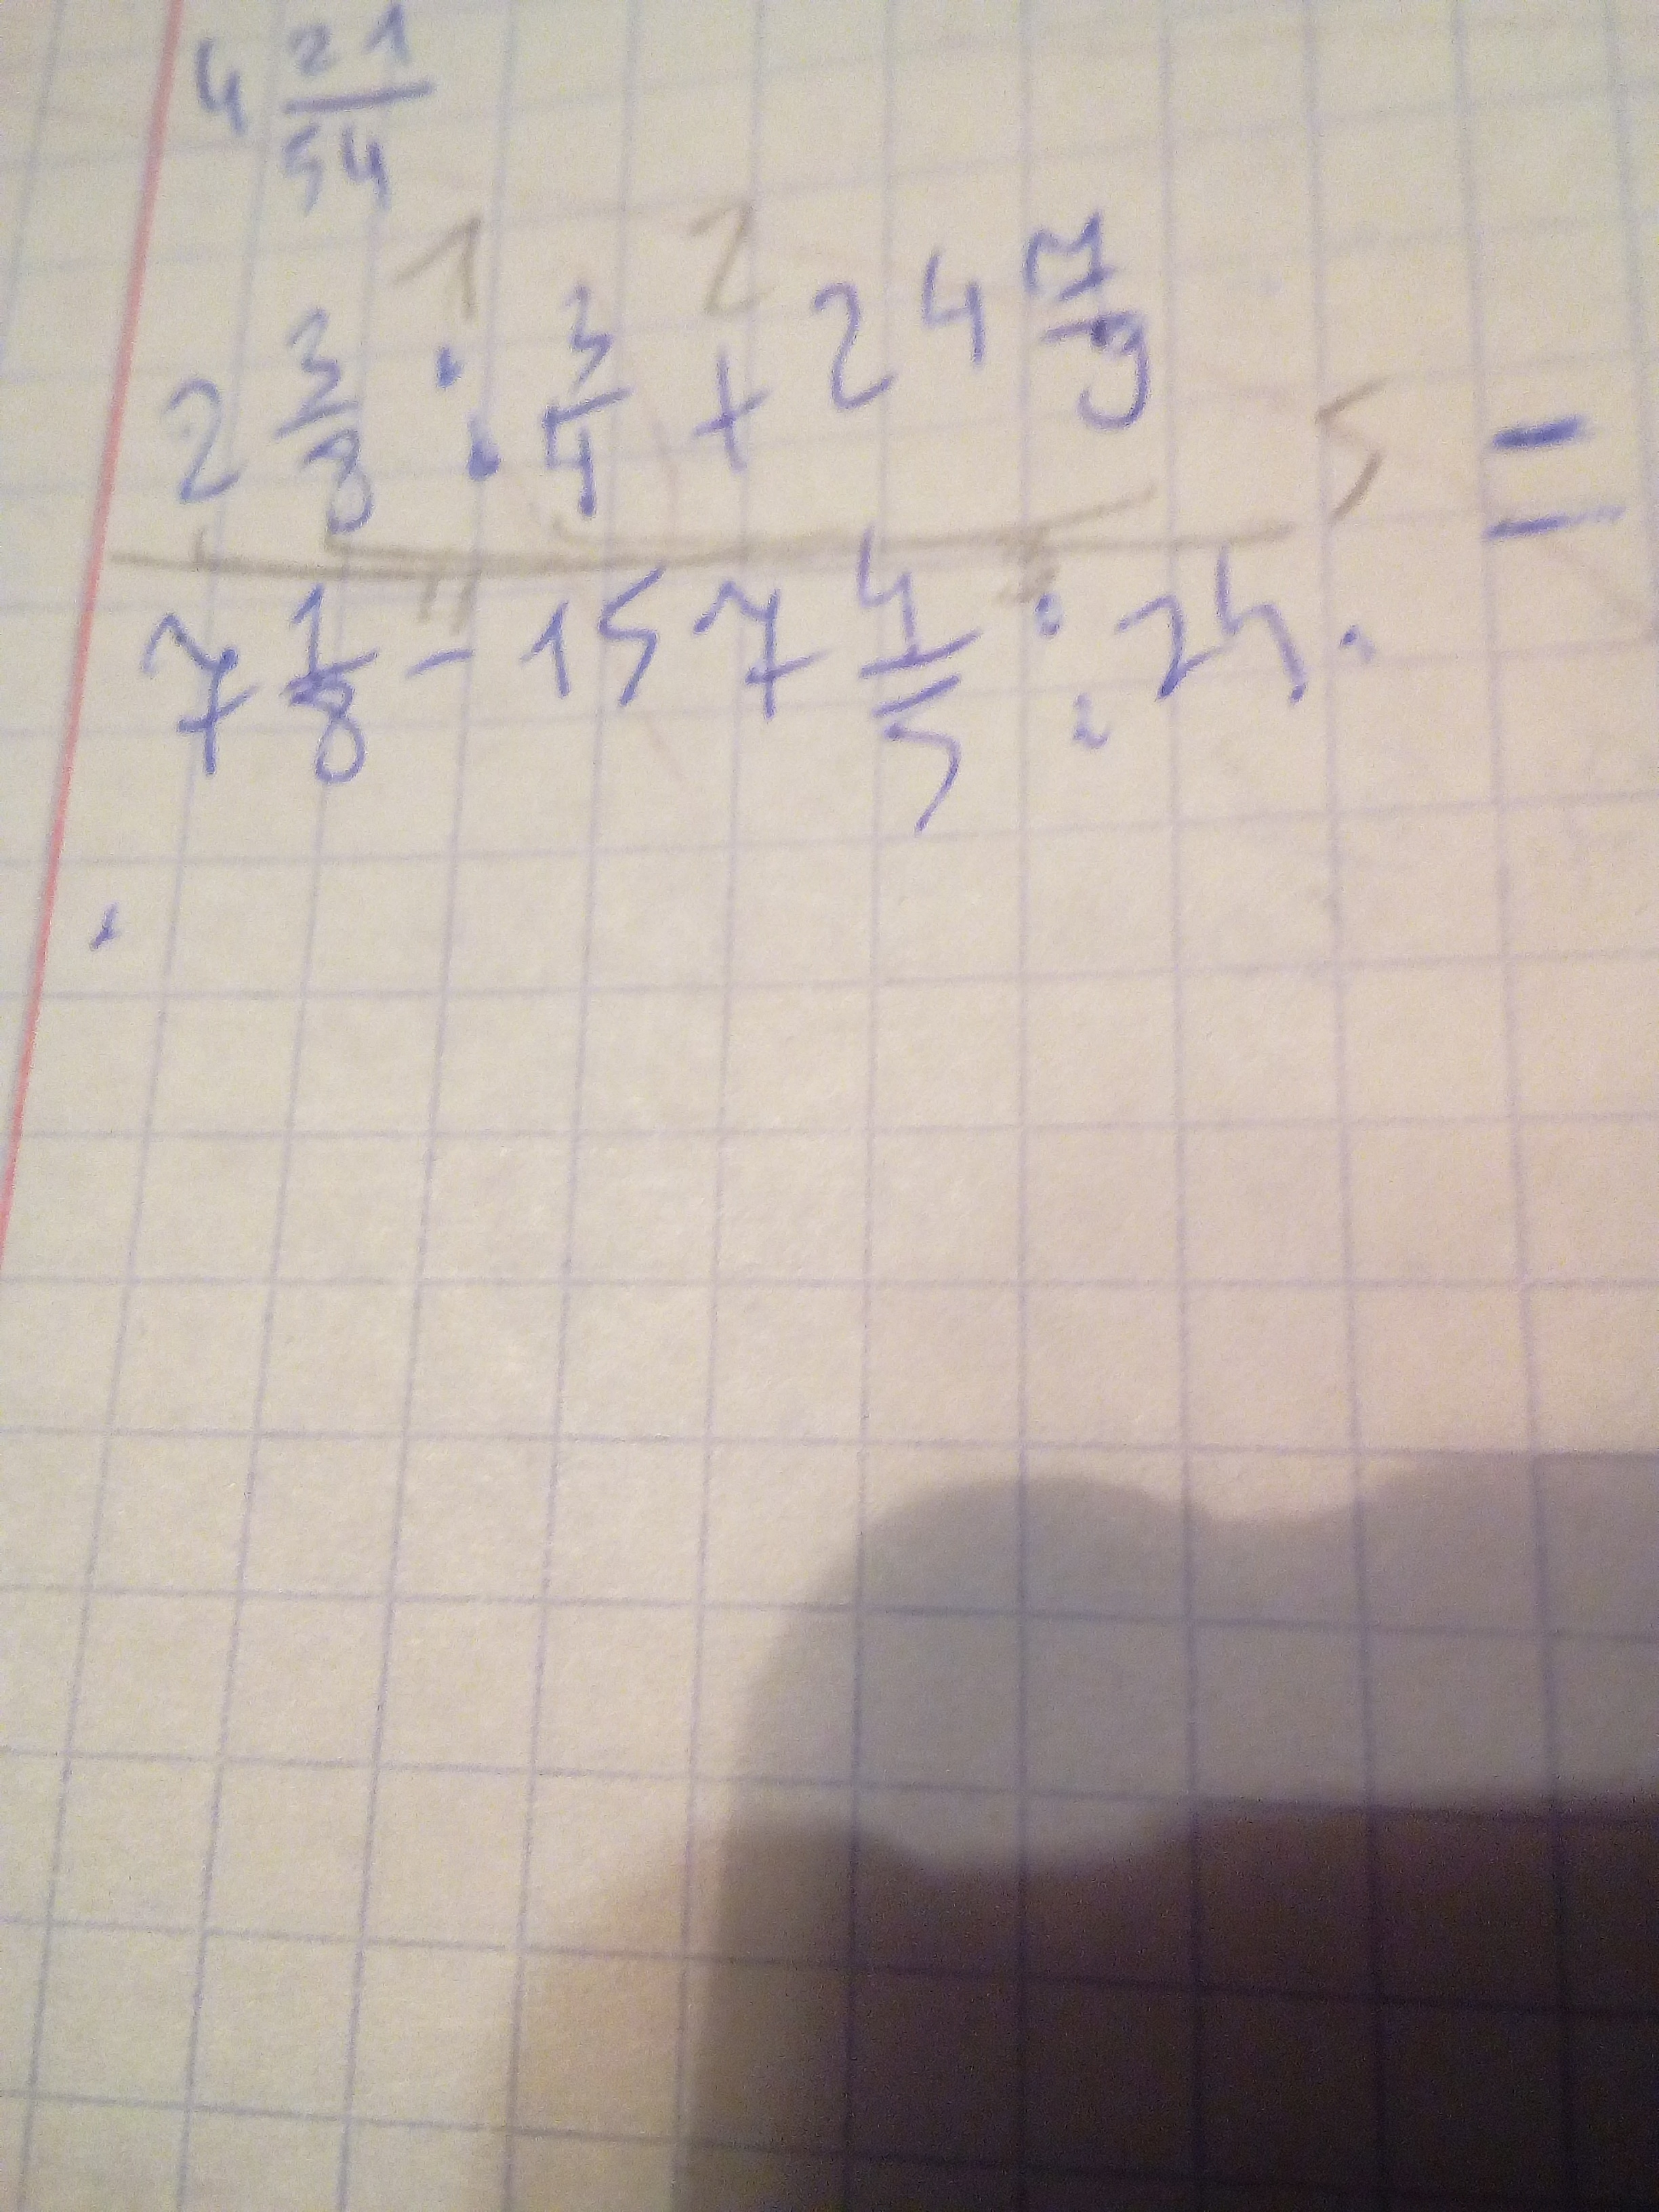 4 21/54
1 2
2 3/8 : 3/4 + 24 7/9
5 =
7 1/8 - 157 4/5 : 24.